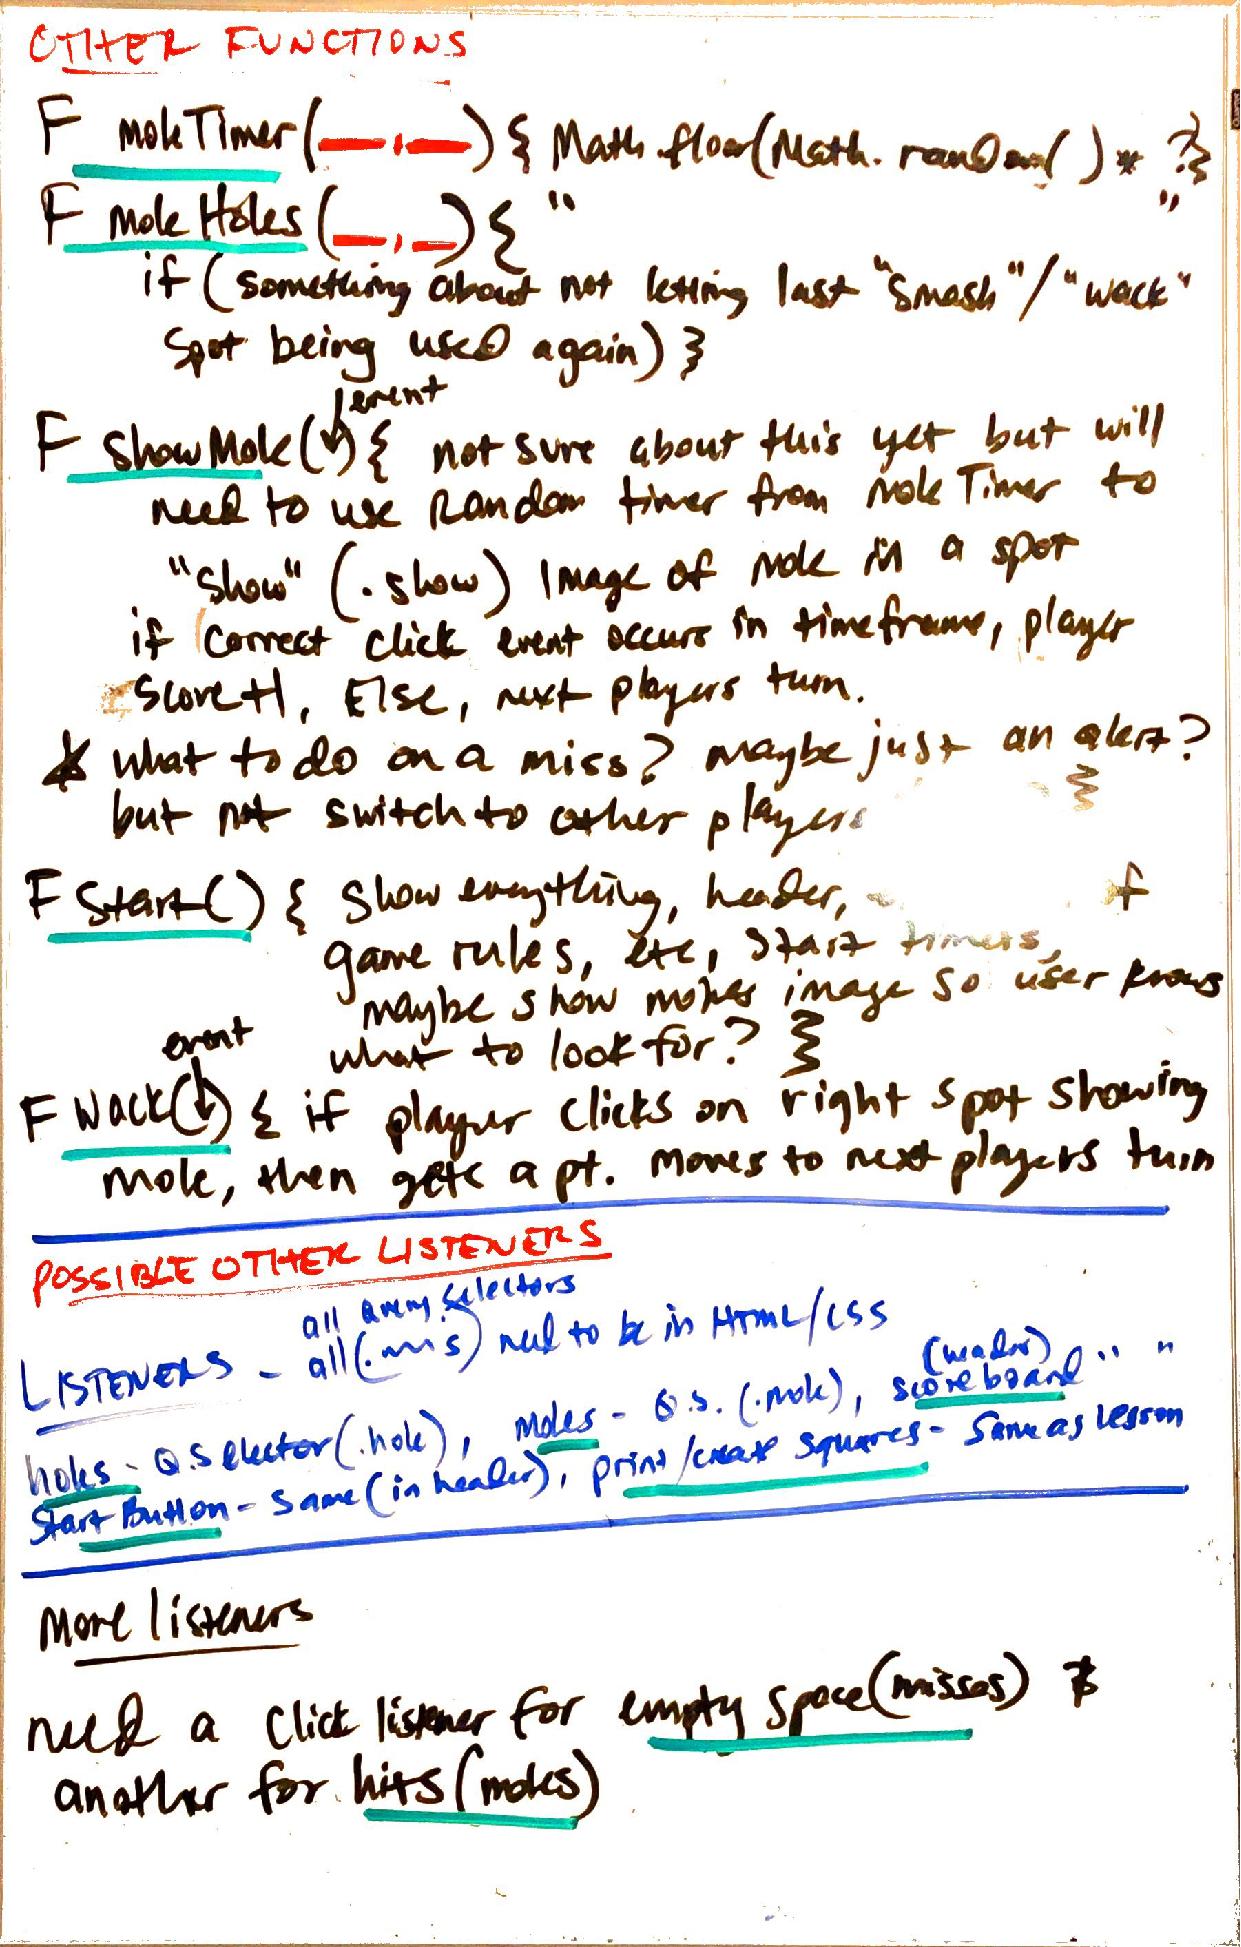 OTHER FUNCTIONS
F moleTimer(__,__) { Math.floor(Math.random() * ?}
F moleHoles(__,__) { " "
if (something about not letting last "smash"/"wack"
spot being used again) }
event
F ShowMole( ) { not sure about this yet but will
need to use Random timer from MoleTimer to
"show" (.show) Image of mole in a spot
if correct click event occurs in timeframe, player
score +1, Else, next players turn.
* what to do on a miss? maybe just an alert?
but not switch to other players }
F Start() { show everything, header,
game rules, etc, start timers,
maybe show moles image so user knows
what to look for? }
event
F Wack( ) { if player clicks on right spot showing
mole, then gets a pt. moves to next players turn
POSSIBLE OTHER LISTENERS
all query selectors
LISTENERS - all(. ) need to be in HTML/CSS
(header)
holes - Q.Selector(.hole), moles - Q.S. (.mole), scoreboard " "
Start Button - same (in header), print/create squares - same as lesson
More listeners
need a click listener for empty space (misses) &
another for hits (moles)